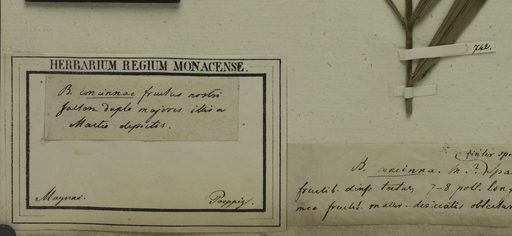 742.
HERBARIUM REGIUM MONACENSE.
B. concinnae fructus nostri
saltem duplo majores illis a
Martio depictis.
Maynas. Poeppig.
B. concinna. M. ? Spa
fructib. dense 7-8 poll. lon
fructib. matur.